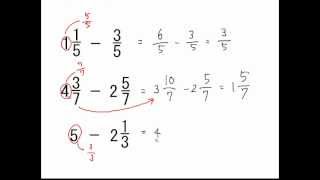 5/5
1 1/5 − 3/5 = 6/5 − 3/5 = 3/5
4 3/7 − 2 5/7 = 3 10/7 − 2 5/7 = 1 5/7
5 − 2 1/3 = 4
3/3